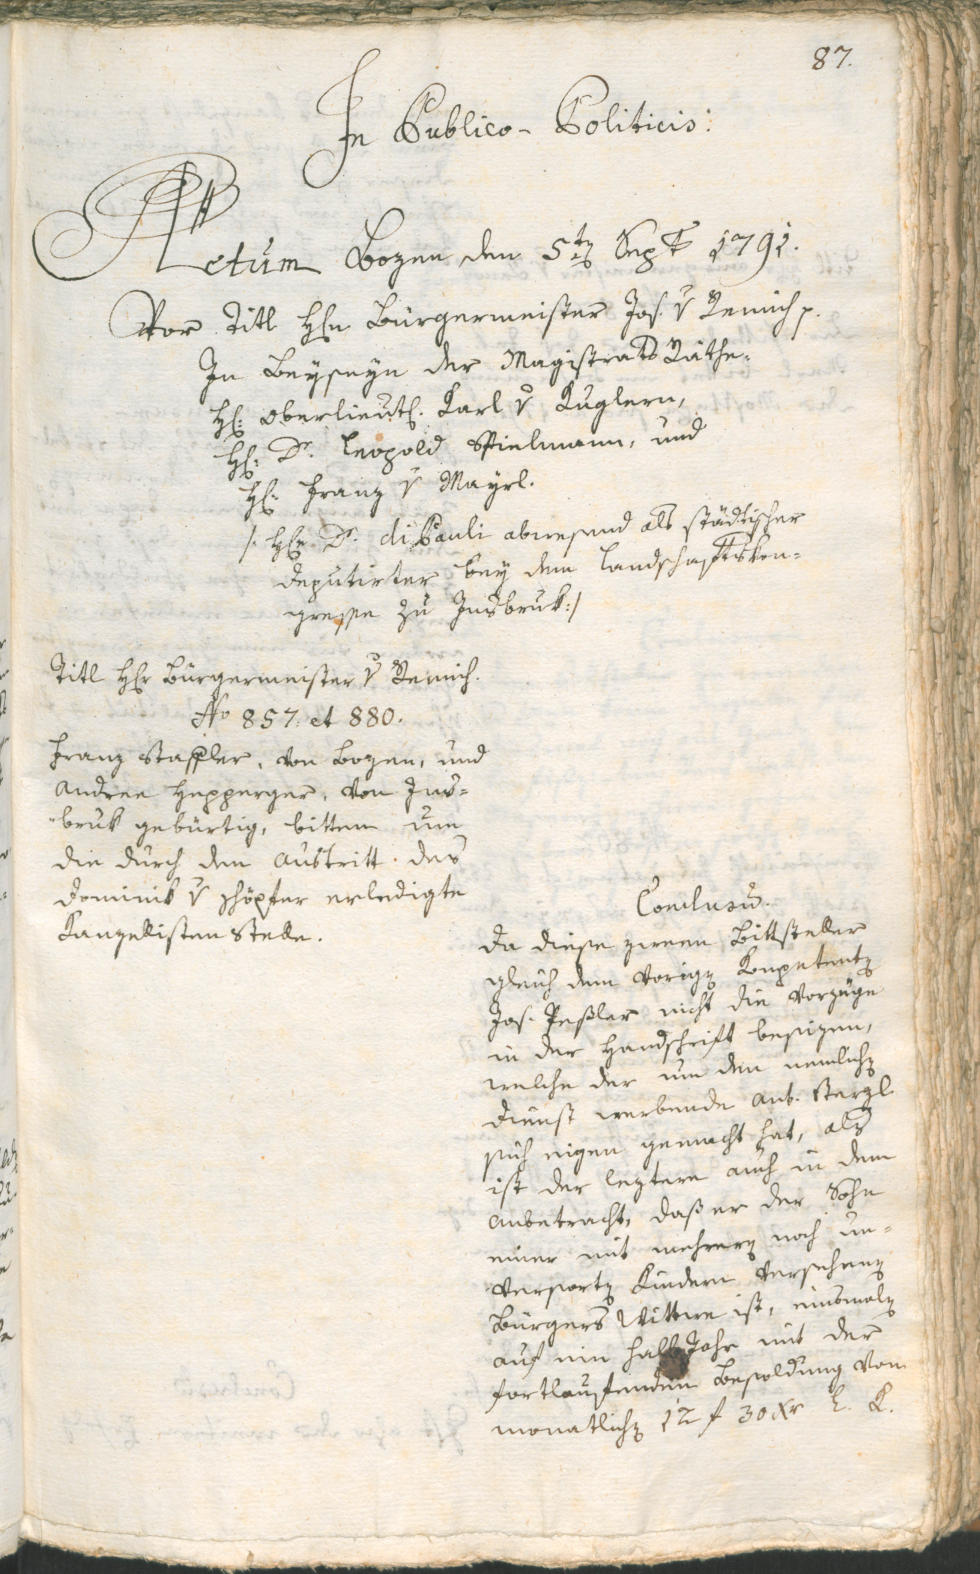 87.
In Publico-Politicis:
Actum Bozen den 5ten Sept 1791.
Vor Titl Hh Bürgermeister Jos. v Remich p.
In Beyseyn der Magistrats Räthe.
H: Oberlieut: Karl v Kuglern,
H: Dr. Leopold Spielmann, und
H: Franz v Mayrl.
/: H: Dr. di Pauli abwesend als städtischer
Deputirter bey dem Landschaftskon-
gresse zu Insbruk:/
Titl Hh Bürgermeister v Remich.
No 857. et 880.
Franz Staffler, von Bozen, und
Andree Hepperger, von Ins-
bruk gebürtig, bitten um
die durch den Austritt des
Dominik v Schöpfer erledigte
Kanzellisten Stelle.
Conclusum.
Da diese zween Bittsteller
gleich dem vorigen Kompetenten
Jos. Peßler nicht die Vorzüge
in der Handschrift besizen,
welche der um den nemlichen
Dienst werbende Ant. Sterzl
sich eigen gemacht hat, als
ist der leztere auch in dem
Anbetracht, daß er der Sohn
einer mit mehreren noch un-
versorgten Kindern versehenen
Bürgers Wittwe ist, einsmalen
auf ein halb Jahr mit der
fortlaufenden Besoldung von
monatlichen 12 f 30 xr